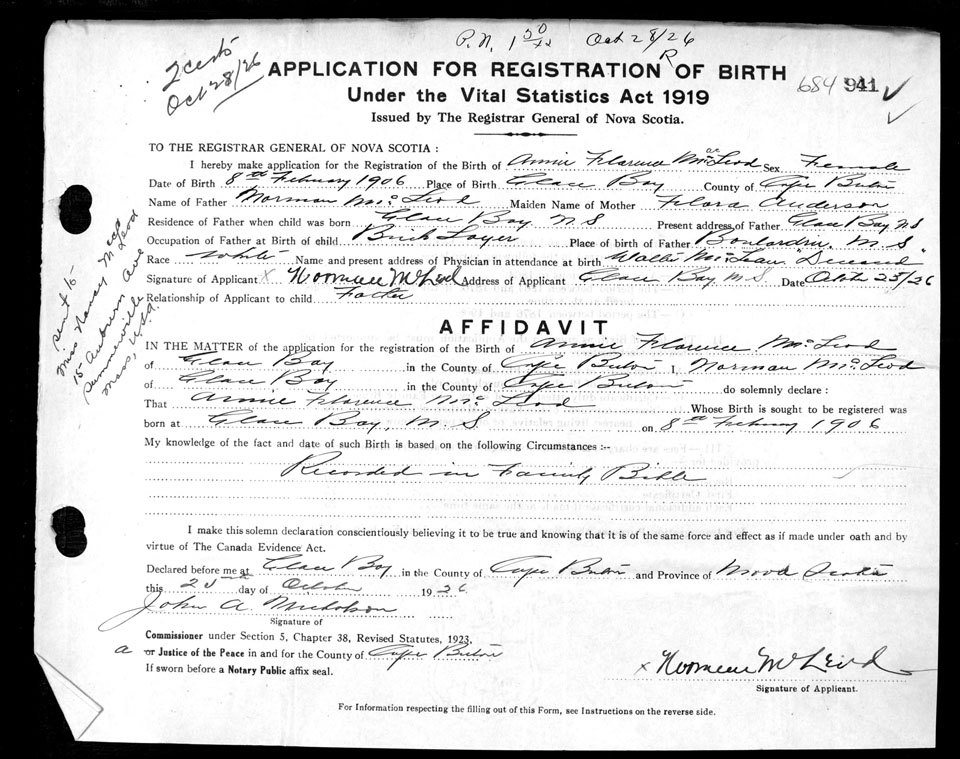 P.N. 1 50/xx Oct 28/26
2 certs
Oct 28/26
R
APPLICATION FOR REGISTRATION OF BIRTH
684 941 ✓
Under the Vital Statistics Act 1919
Issued by The Registrar General of Nova Scotia.
TO THE REGISTRAR GENERAL OF NOVA SCOTIA :
I hereby make application for the Registration of the Birth of Annie Florence McLeod Sex Female
Date of Birth 8th February 1906 Place of Birth Glace Bay County of Cape Breton
Name of Father Norman McLeod Maiden Name of Mother Flora Anderson
Residence of Father when child was born Glace Bay N S Present address of Father Glace Bay N S
Occupation of Father at Birth of child Brick Layer Place of birth of Father Boulardrie, N. S
Race white Name and present address of Physician in attendance at birth McLean "Deceased"
Signature of Applicant X Norman McLeod Address of Applicant Glace Bay N S Date Octbr 25/26
Relationship of Applicant to child Father
sent to
Miss Nancy McLeod
15 Auburn Ave
Summerville
Mass, USA.
AFFIDAVIT
IN THE MATTER of the application for the registration of the Birth of Annie Florence McLeod
of Glace Bay in the County of Cape Breton I, Norman McLeod
of Glace Bay in the County of Cape Breton do solemnly declare :
That Annie Florence McLeod Whose Birth is sought to be registered was
born at Glace Bay, N. S on 8th February 1906
My knowledge of the fact and date of such Birth is based on the following Circumstances :--
Recorded in Family Bible
I make this solemn declaration conscientiously believing it to be true and knowing that it is of the same force and effect as if made under oath and by
virtue of The Canada Evidence Act.
Declared before me at Glace Bay in the County of Cape Breton and Province of Nova Scotia
this 25th day of October 1926
John A Nicholson
Signature of
Commissioner under Section 5, Chapter 38, Revised Statutes, 1923,
a or Justice of the Peace in and for the County of Cape Breton
If sworn before a Notary Public affix seal.
x Norman McLeod
Signature of Applicant.
For Information respecting the filling out of this Form, see Instructions on the reverse side.